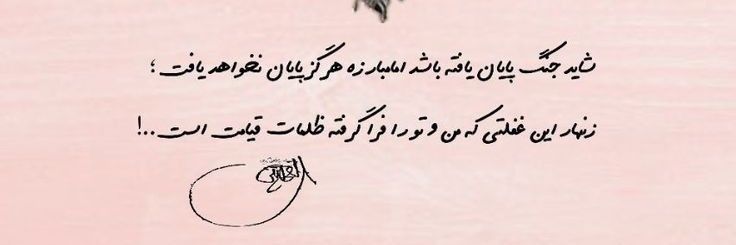 شاید جنگ پایان یافته باشد اما مبارزه هرگز پایان نخواهد یافت ؛
زنهار این غفلتی که من و تو را فرا گرفته ظلمات قیامت است..!